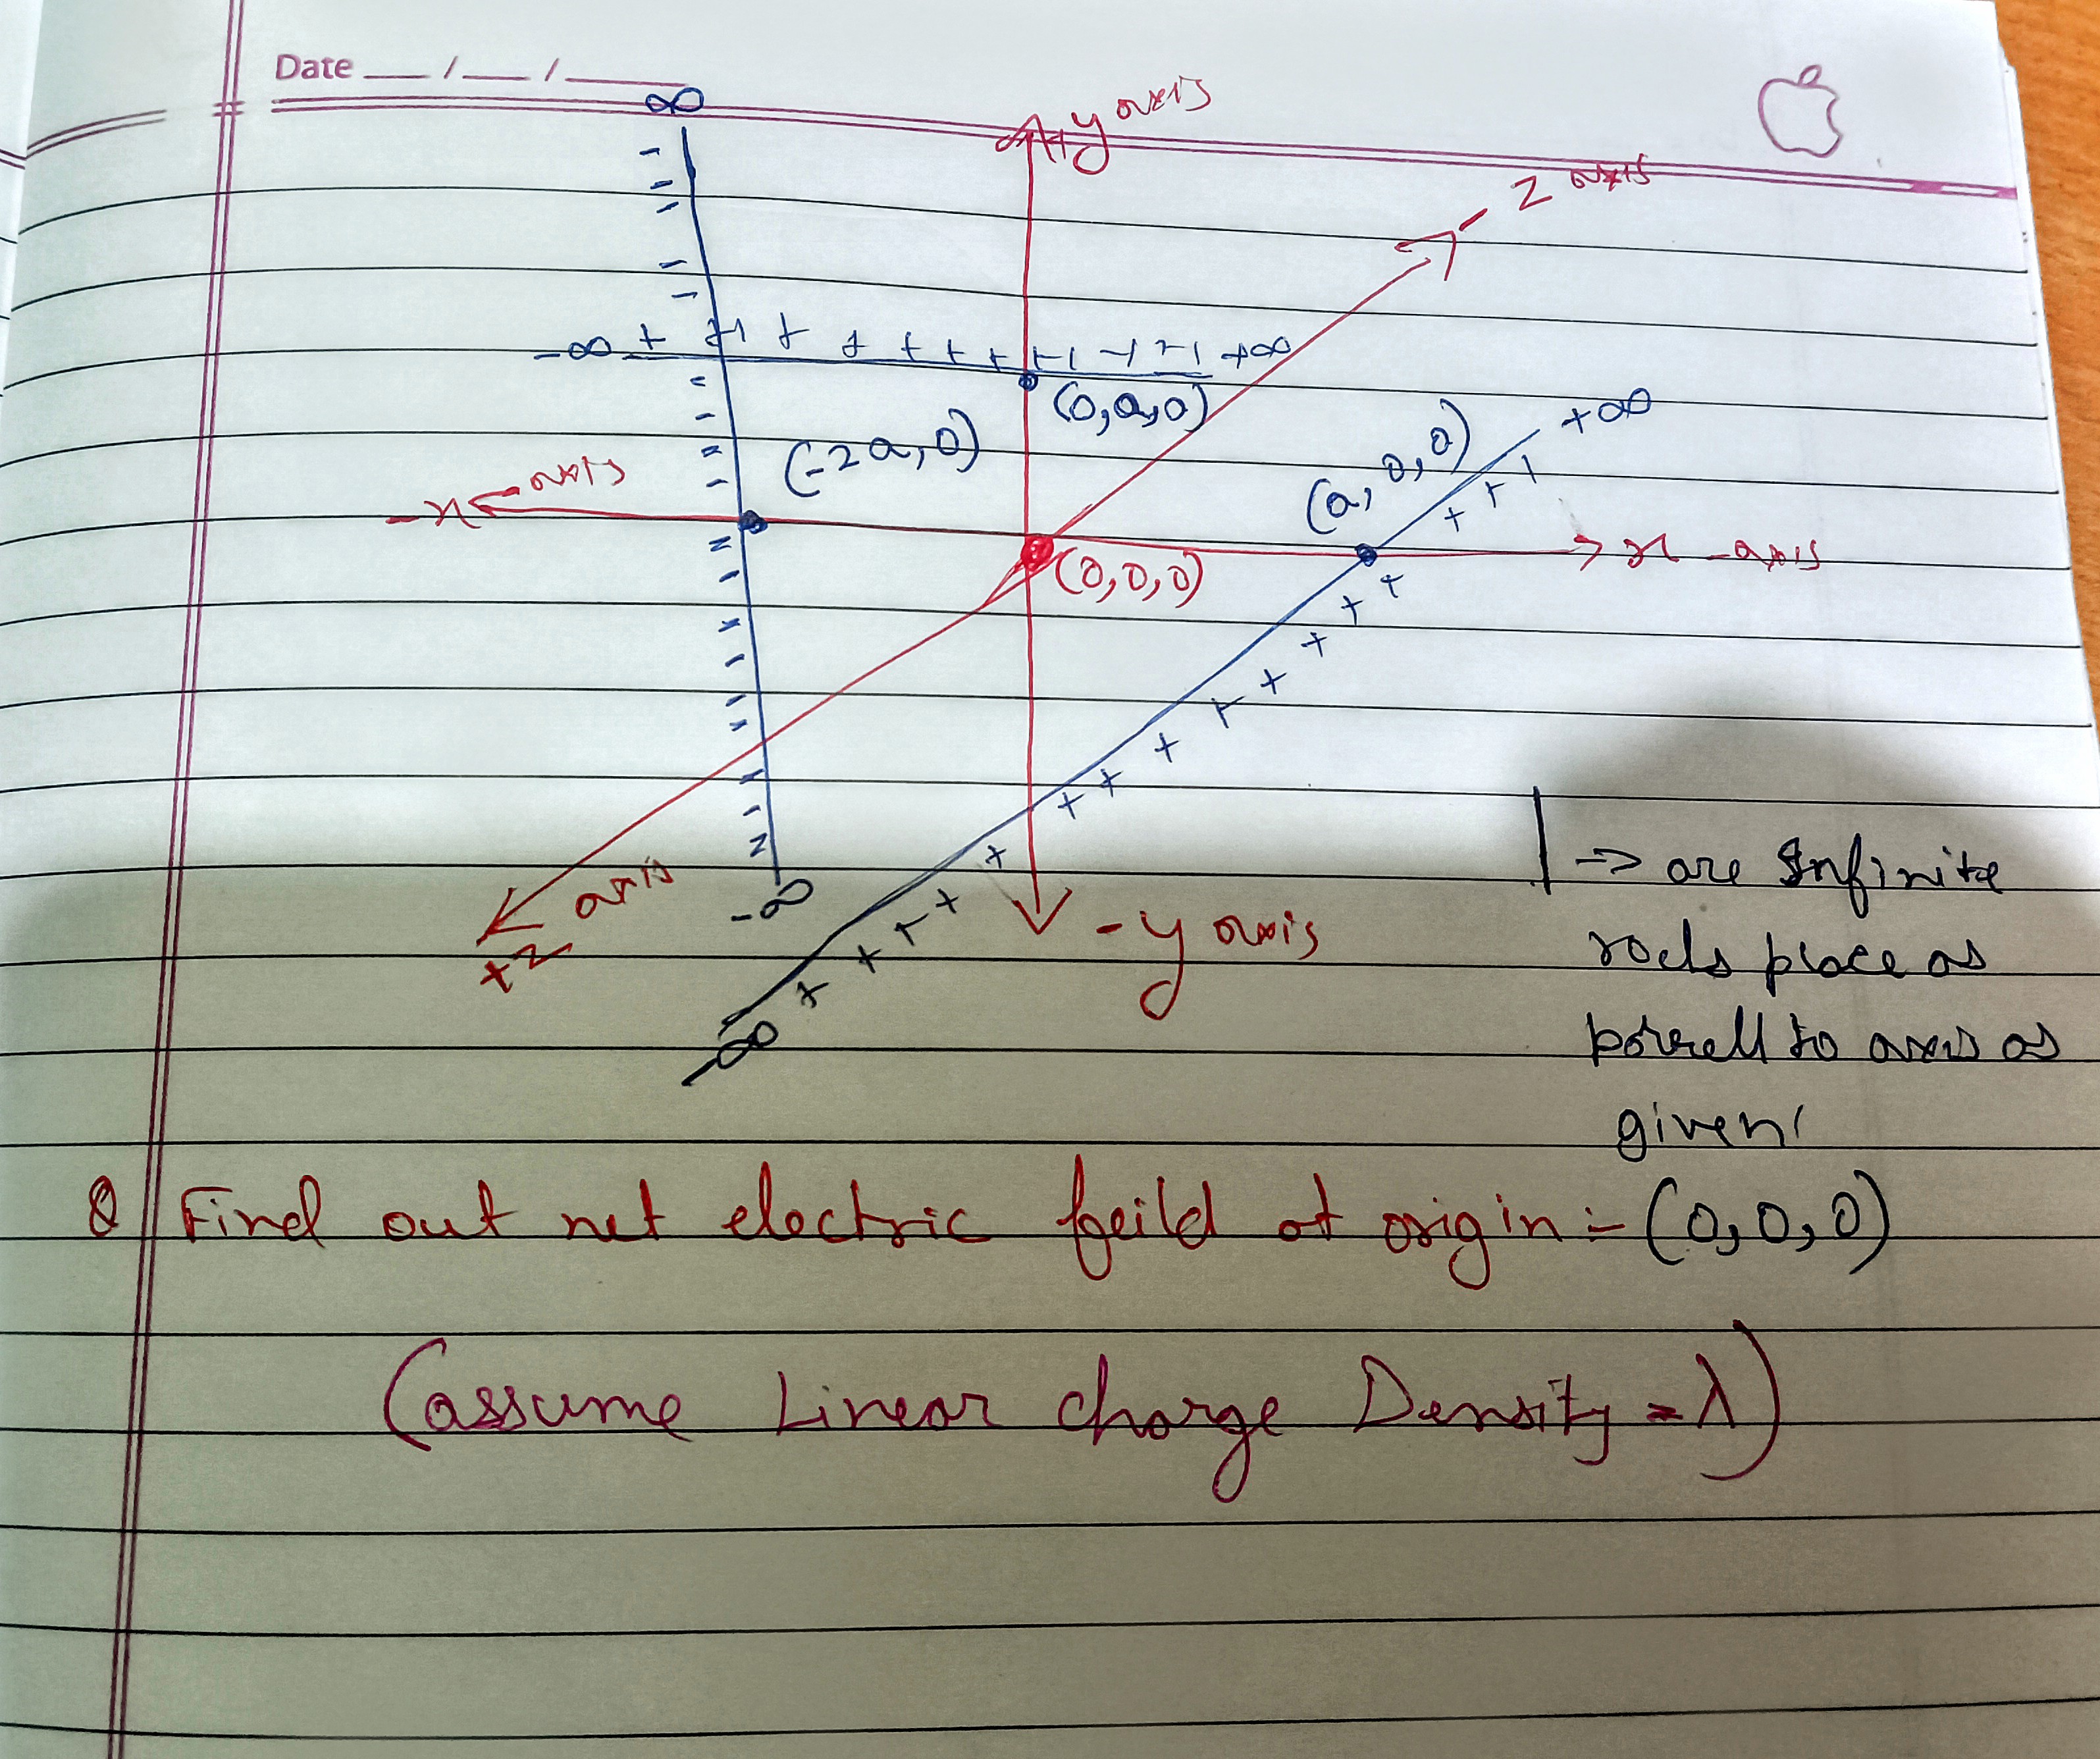 Date __ / __ / ____
∞
+y axis
- Z axis
-∞ + + + + + + + + + + + +∞
(0,a,0)
+∞
(-2a,0)
(a,0,0)
-x - axis
x -axis
(0,0,0)
axis
+z
-∞
-y axis
-∞
| -> are Infinite
rods place as
to axis as
given
Q Find out net electric feild at origin :- (0,0,0)
(assume Linear charge Density = λ)